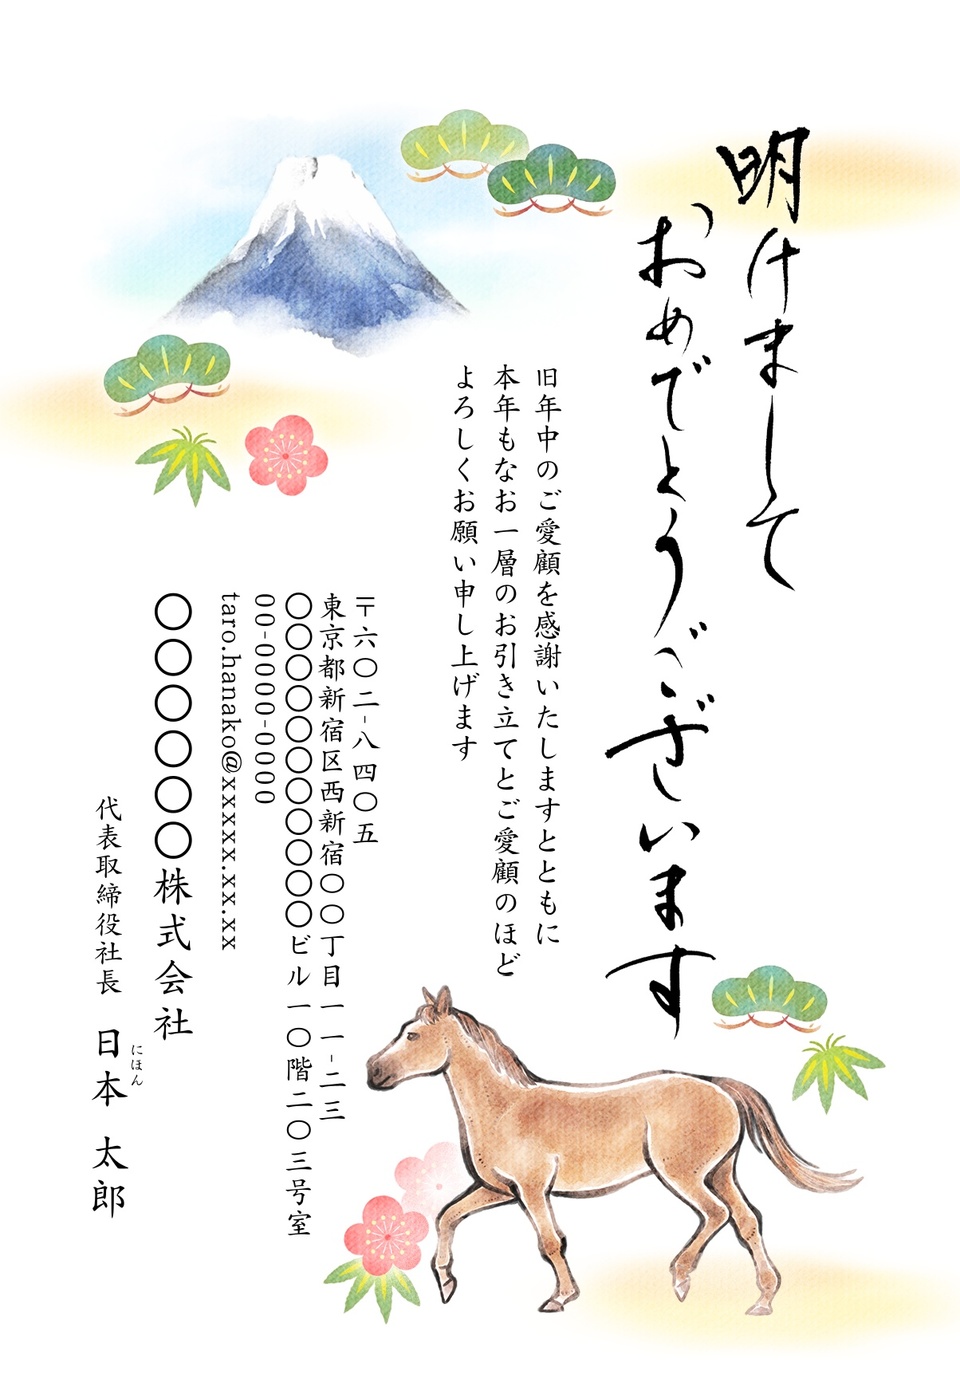 明けまして
おめでとうございます
旧年中のご愛顧を感謝いたしますとともに
本年もなお一層のお引き立てとご愛顧のほど
よろしくお願い申し上げます
〒六〇二-八四〇五
東京都新宿区西新宿〇〇丁目一一-二三
〇〇〇〇〇〇〇〇〇〇〇ビル一〇階二〇三号室
00-0000-0000
taro.hanako@xxxxx.xx.xx
〇〇〇〇〇〇株式会社
代表取締役社長 日本 太郎
にほん